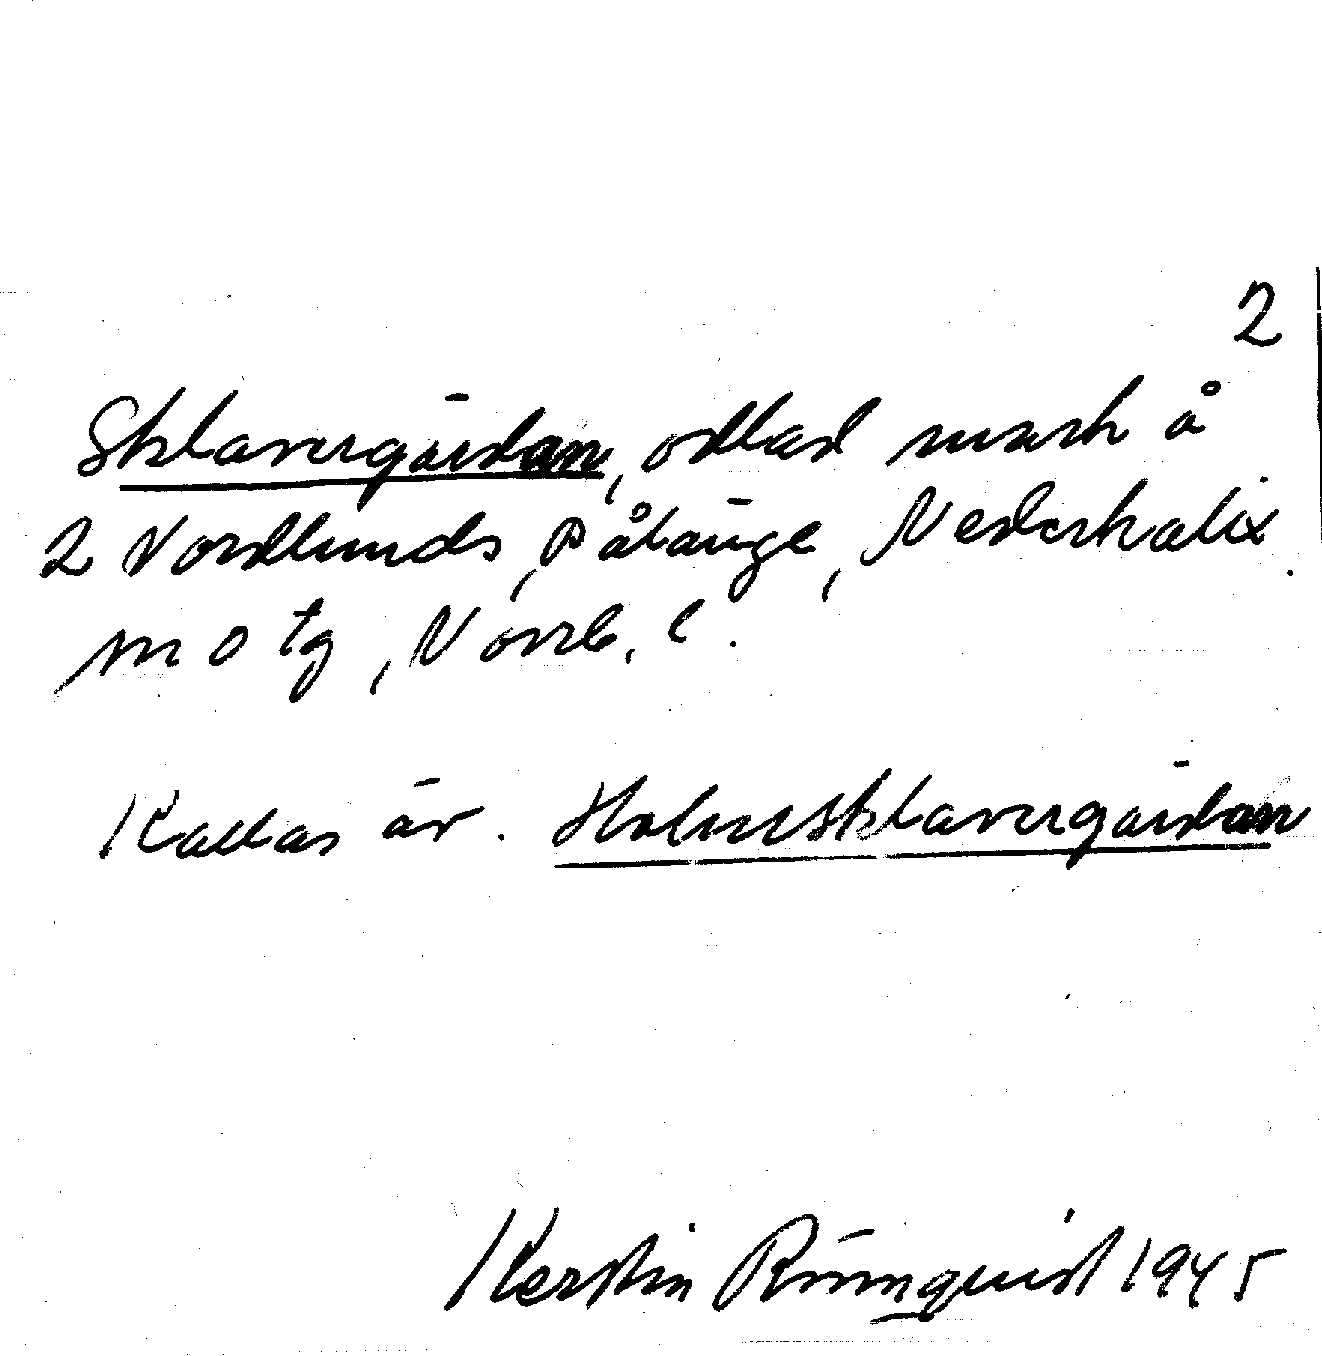 2
Sklavergärdan, odlad mark å
2 Nordlunds, Pålänge, Nederkalix
m o tg, Norrb. l.
Kallas äv. Holmsklavergärdan
Kerstin Rönnquist 1945